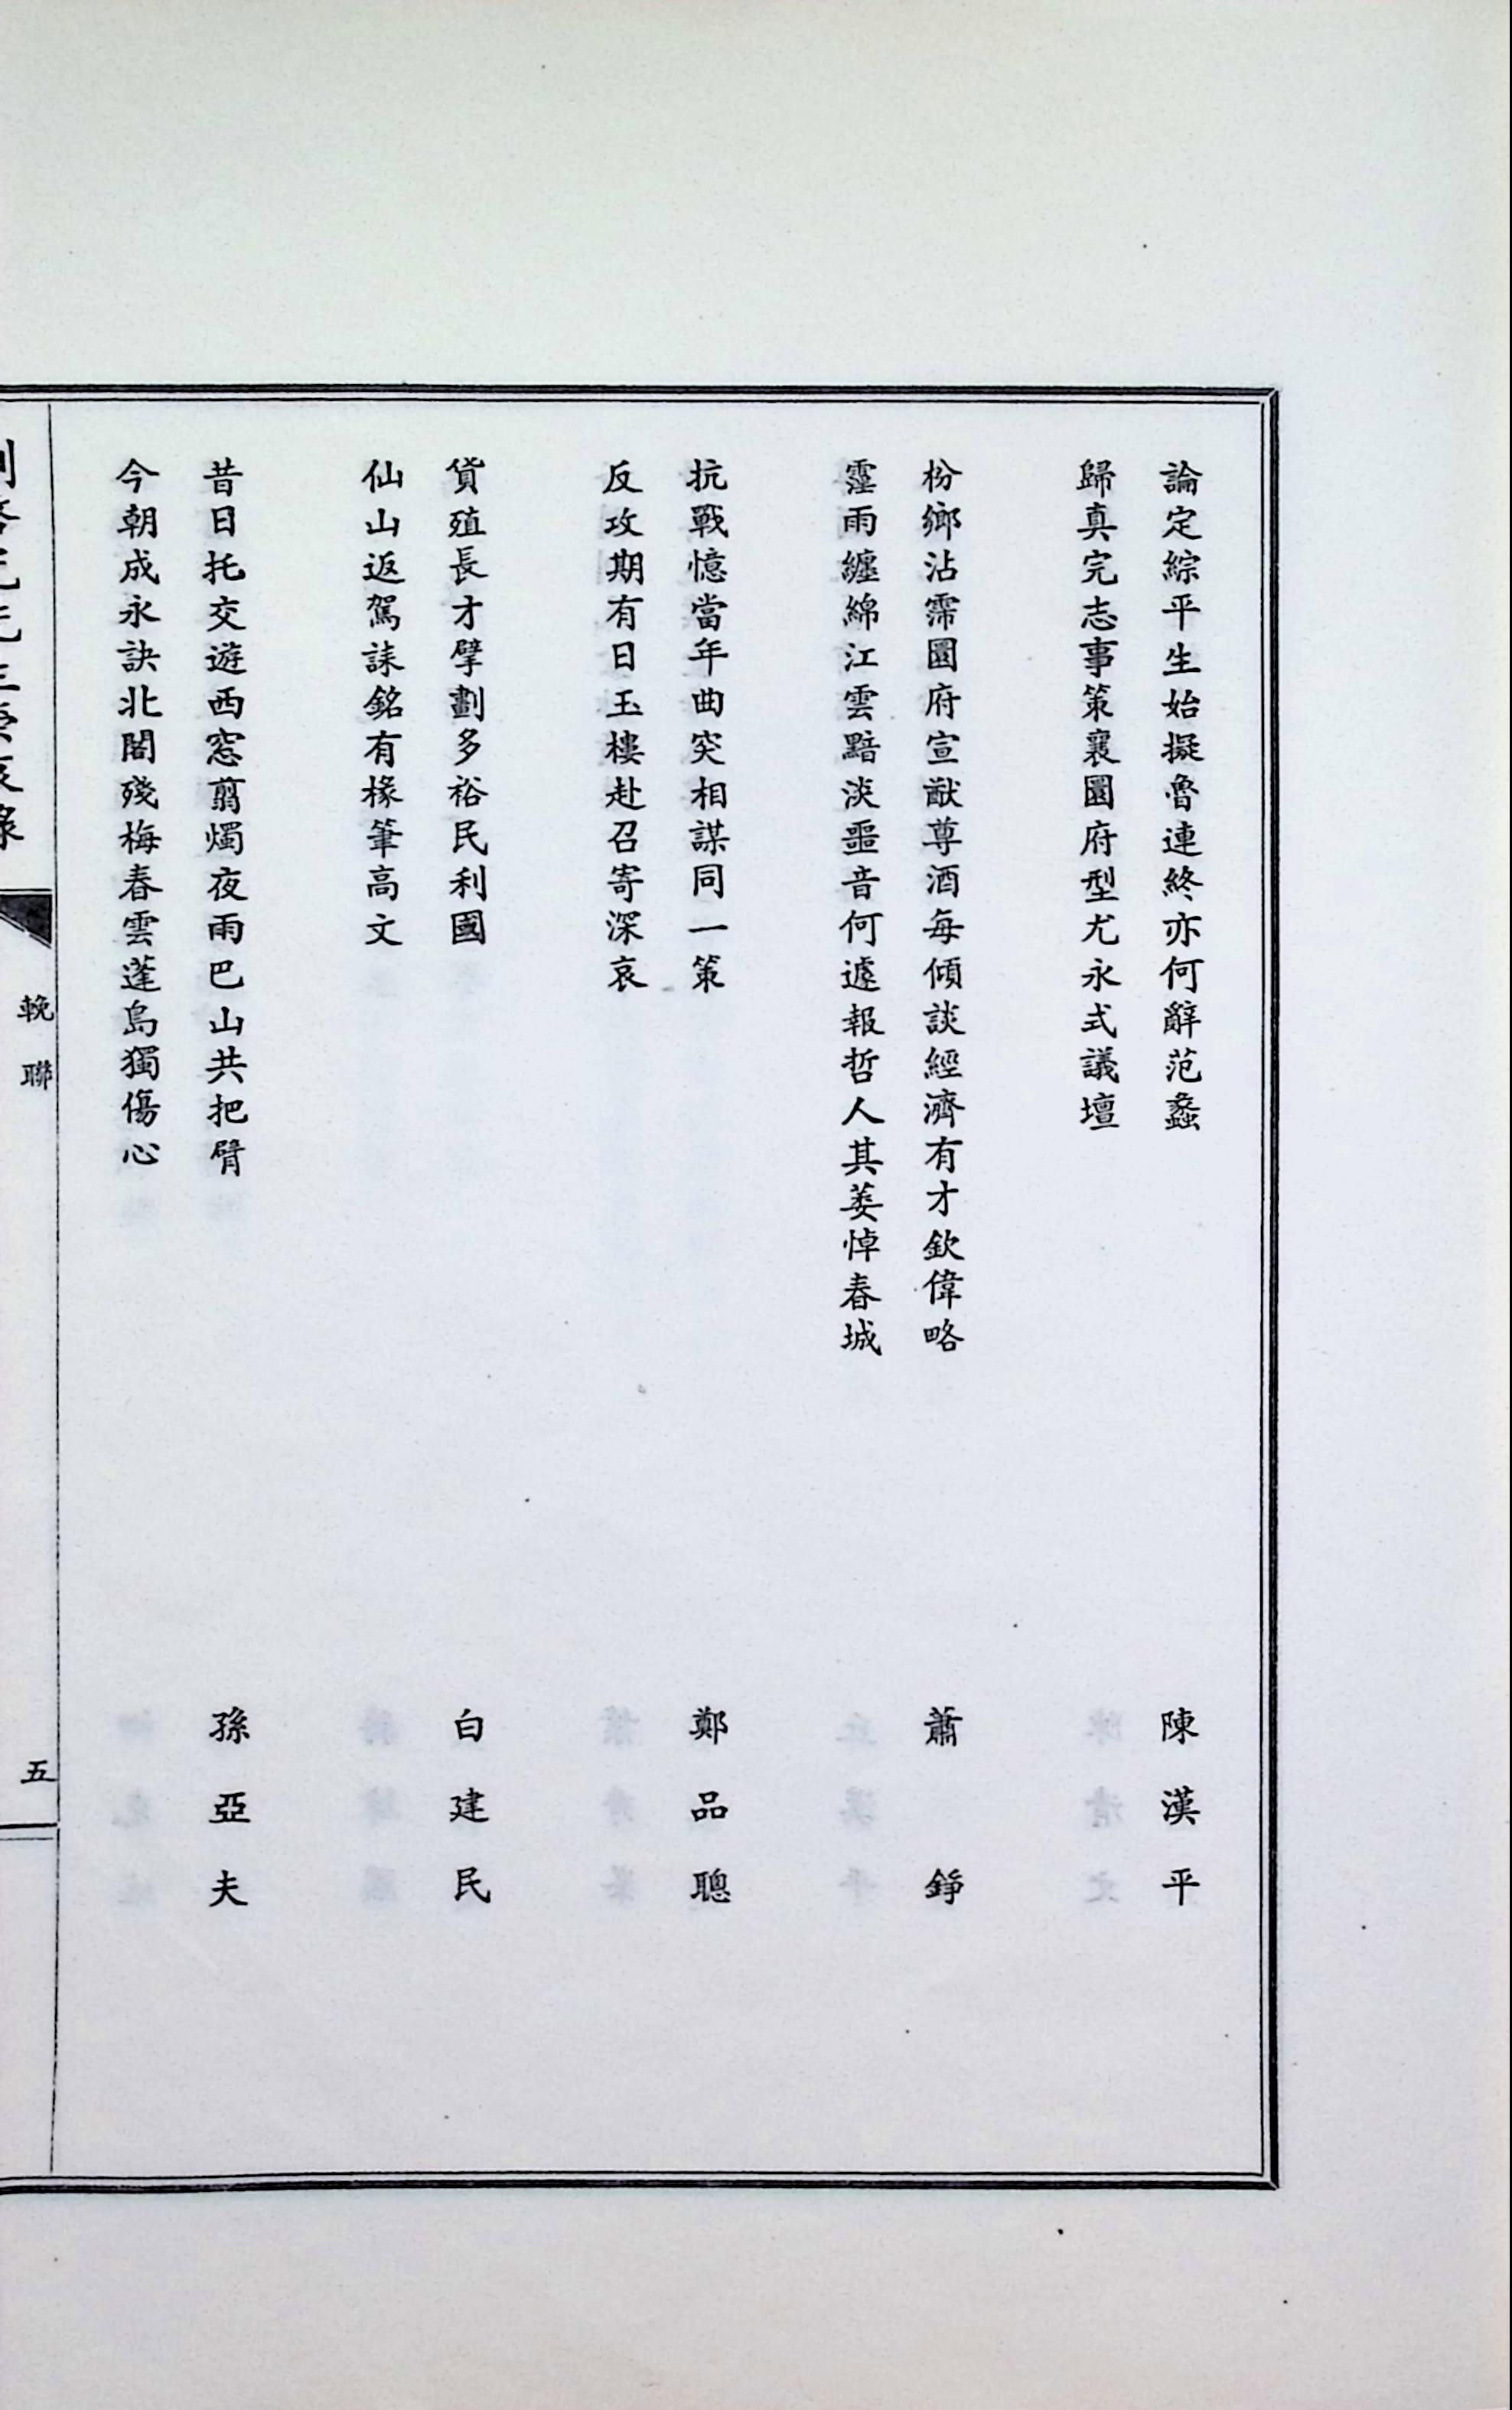 論定綜平生始擬魯連終亦何辭范蠡
陳漢平
歸真完志事策襄圜府型尤永式議壇
枌鄉沾霈圜府宣猷尊酒每傾談經濟有才欽偉略
蕭錚
霪雨纏綿江雲黯淡噩音何遽報哲人其萎悼春城
抗戰憶當年曲突相謀同一策
鄭品聰
反攻期有日玉樓赴召寄深哀
貨殖長才擘劃多裕民利國
白建民
仙山返駕誄銘有椽筆高文
昔日托交遊西窓翦燭夜雨巴山共把臂
孫亞夫
今朝成永訣北閣殘梅春雲蓬島獨傷心
先生榮哀錄
輓聯
五